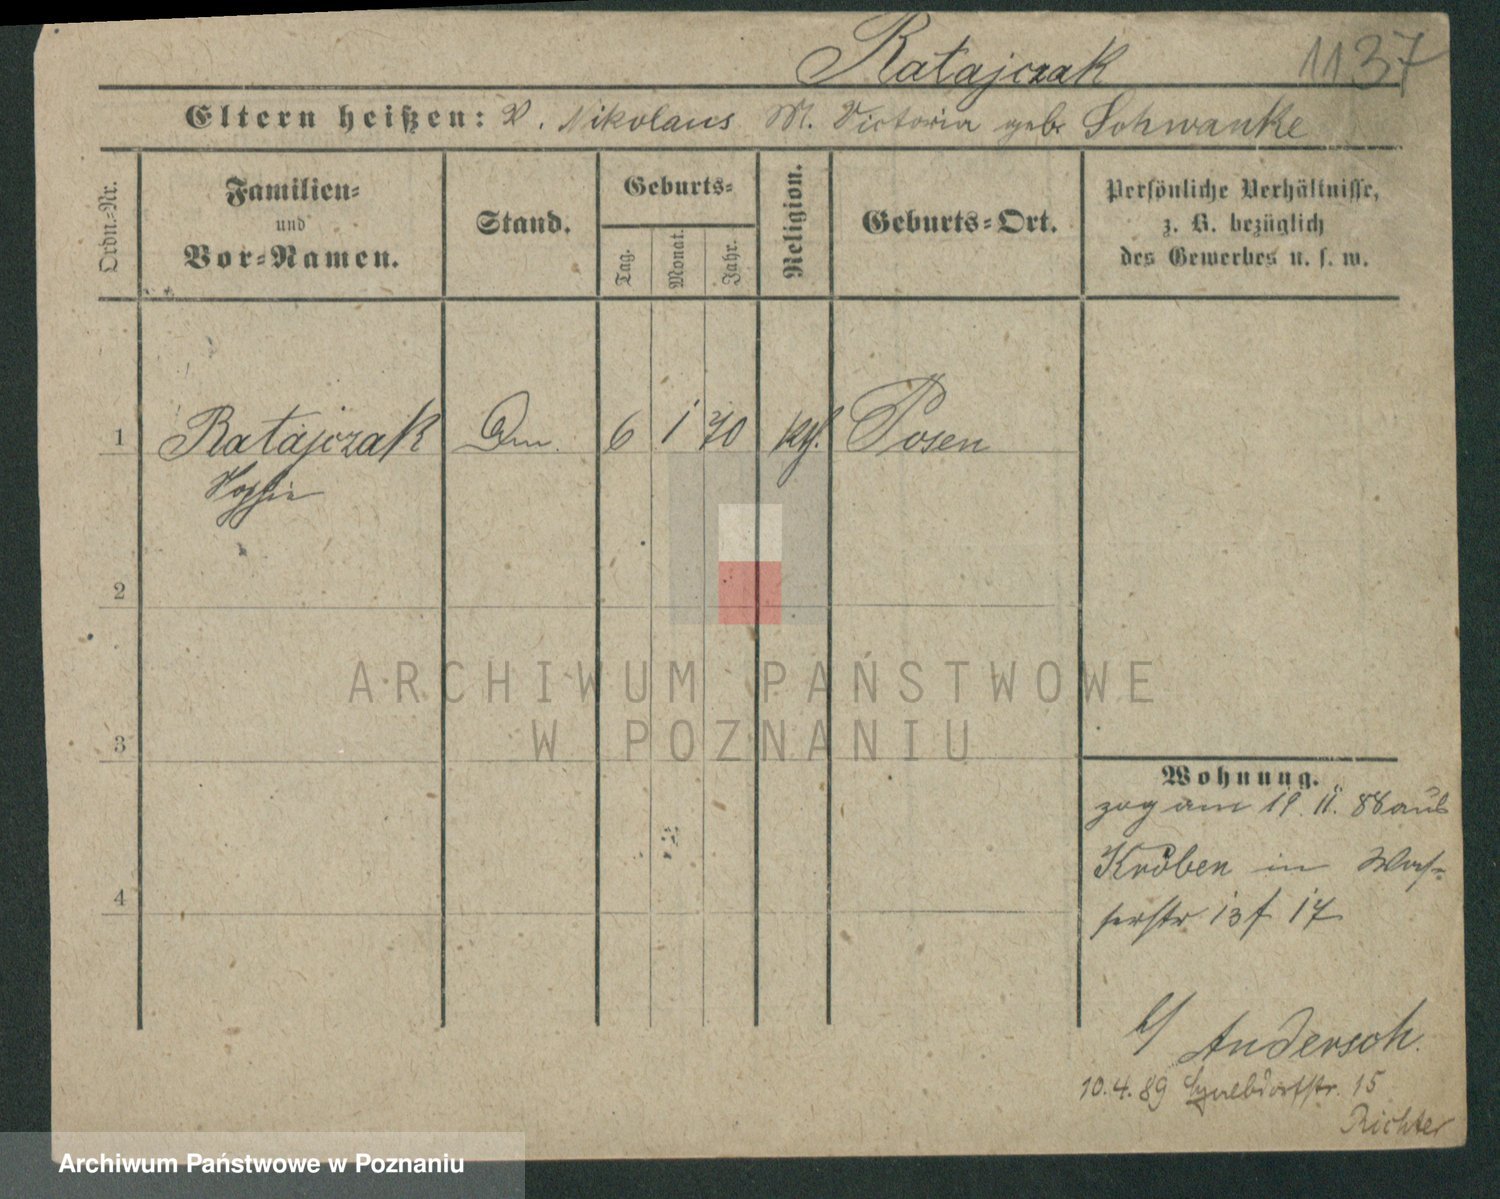 Ratajczak 1137
Eltern heißen: V. Nikolaus M. Victoria geb. Schwanke
Ordn.-Nr.
Familien-
und
Vor-Namen.
Stand.
Geburts-
Tag.
Monat.
Jahr.
Religion.
Geburts-Ort.
Persönliche Verhältnisse,
z. B. bezüglich
des Gewerbes u. s. w.
1 Ratajczak 6 1 70 kth. Posen
Sophie
2
3
4
ARCHIWUM PAŃSTWOWE
W POZNANIU
Wohnung.
zog am 19. 11. 88 aus
Kröben in Was-
serstr. 13 f 17
b/ Andersch.
10.4.89 15
Richter
Archiwum Państwowe w Poznaniu